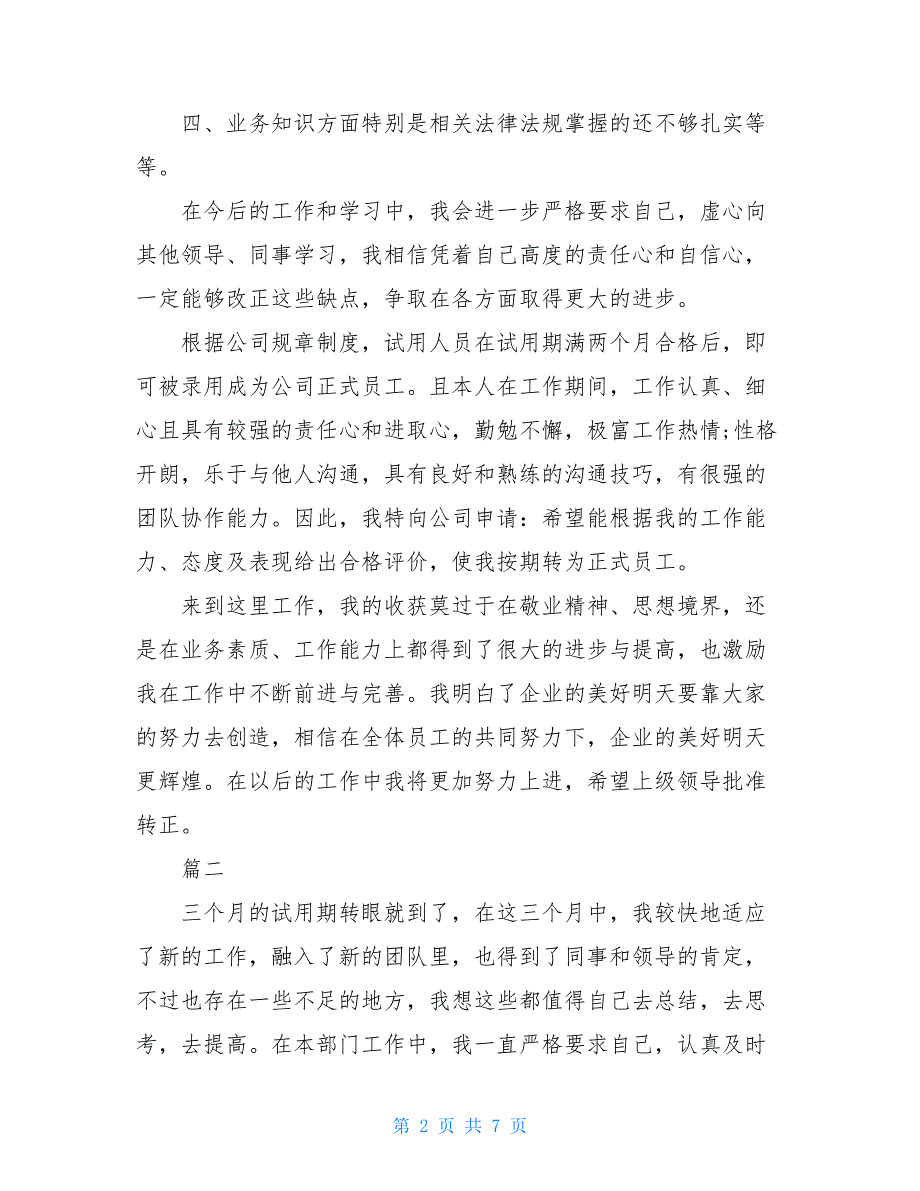 四、业务知识方面特别是相关法律法规掌握的还不够扎实等
等。
在今后的工作和学习中，我会进一步严格要求自己，虚心向
其他领导、同事学习，我相信凭着自己高度的责任心和自信心，
一定能够改正这些缺点，争取在各方面取得更大的进步。
根据公司规章制度，试用人员在试用期满两个月合格后，即
可被录用成为公司正式员工。且本人在工作期间，工作认真、细
心且具有较强的责任心和进取心，勤勉不懈，极富工作热情;性格
开朗，乐于与他人沟通，具有良好和熟练的沟通技巧，有很强的
团队协作能力。因此，我特向公司申请：希望能根据我的工作能
力、态度及表现给出合格评价，使我按期转为正式员工。
来到这里工作，我的收获莫过于在敬业精神、思想境界，还
是在业务素质、工作能力上都得到了很大的进步与提高，也激励
我在工作中不断前进与完善。我明白了企业的美好明天要靠大家
的努力去创造，相信在全体员工的共同努力下，企业的美好明天
更辉煌。在以后的工作中我将更加努力上进，希望上级领导批准
转正。
篇二
三个月的试用期转眼就到了，在这三个月中，我较快地适应
了新的工作，融入了新的团队里，也得到了同事和领导的肯定，
不过也存在一些不足的地方，我想这些都值得自己去总结，去思
考，去提高。在本部门工作中，我一直严格要求自己，认真及时
第 2 页 共 7 页